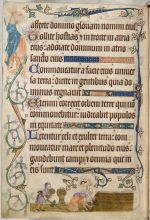 afferte domino gloriam nomini eius
Tollite hostias et introite in atria
eius: adorate dominum in atrio
sancto eius
Commoueatur a facie eius uniuer
sa terra: dicite in gentibus quia do
minus regnauit
Etenim correxit orbem terre qui
non commouebitur: iudicabit populos
in equitate
Letentur celi et exultet terra: com
moueatur mare et plenitudo eius
gaudebunt campi et omnia que in
eis sunt